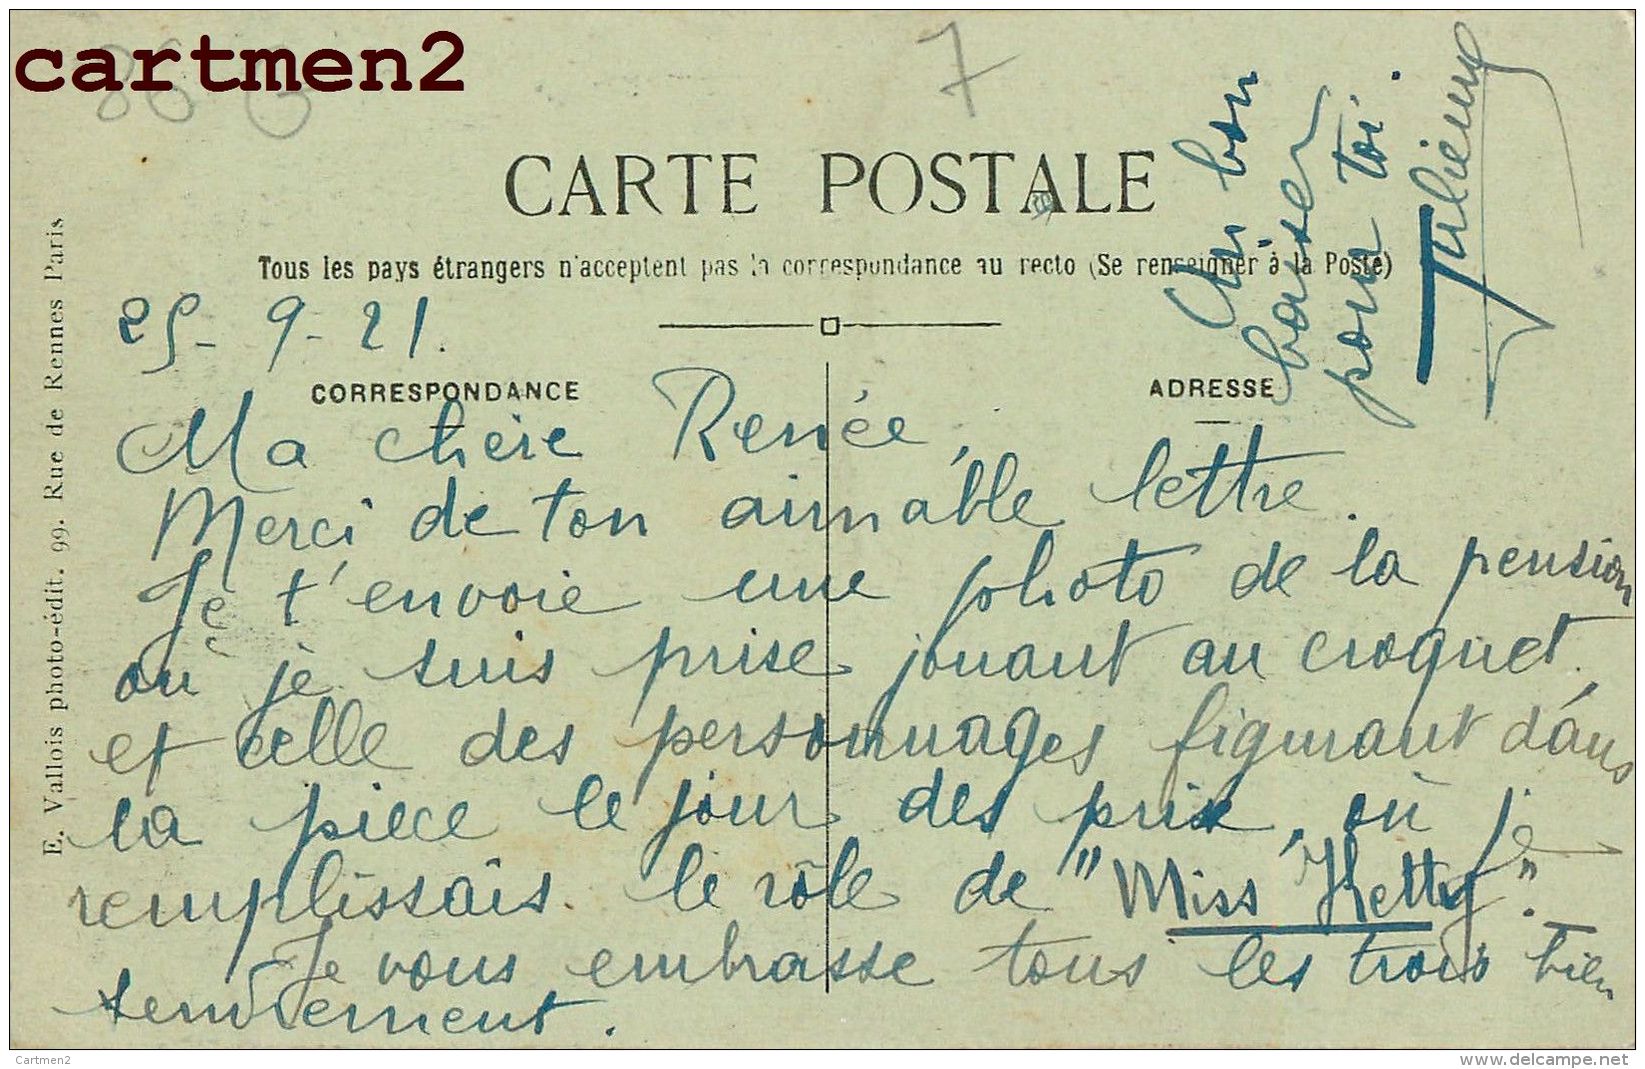 cartmen2
86 G
7
CARTE POSTALE
Tous les pays étrangers n'acceptent pas la correspondance au recto (Se renseigner à la Poste)
25-9-21.
CORRESPONDANCE
ADRESSE
Ma chère Renée,
Merci de ton aimable lettre.
Je t'envoie une photo de la pension
où je suis prise jouant au croquet,
et celle des personnages figurant dans
la pièce le jour des prix, où je
remplissais le rôle de "Miss Ketty".
Je vous embrasse tous les trois bien
tendrement.
Un bon
baiser
pour toi.
Julienne
E. Vallois photo-édit. 99. Rue de Rennes Paris
Cartmen2
www.delcampe.net